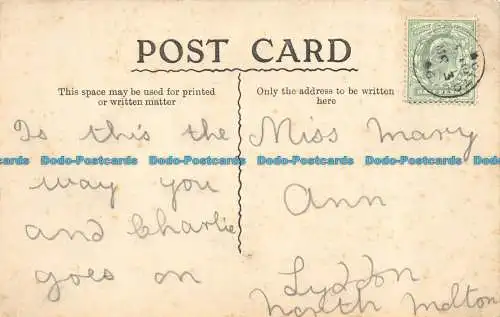 POST CARD
This space may be used for printed
or written matter
Only the address to be written
here
Is this the
way you
and Charlie
goes on
Miss Mary
Ann
Lyddon
North Molton
Dodo-Postcards Dodo-Postcards Dodo-Postcards Dodo-Postcards